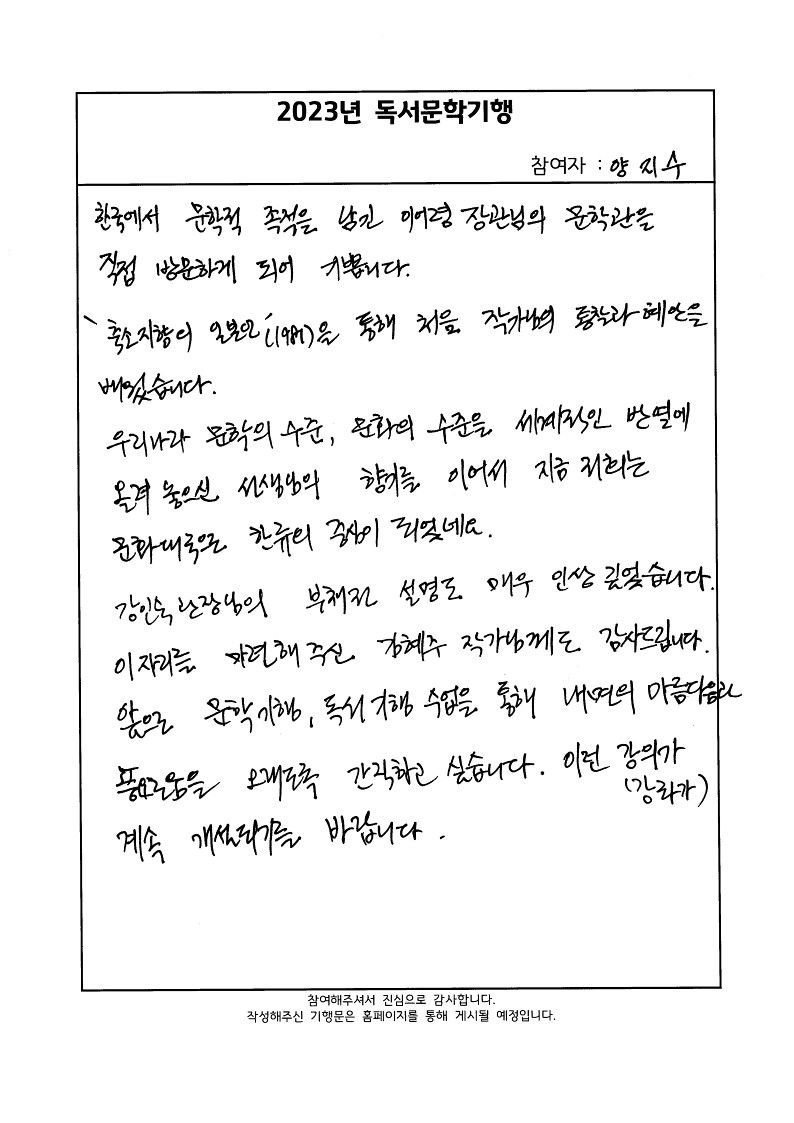 2023년 독서문학기행
참여자 : 양지수
한국에서 문학적 족적을 남긴 이어령 장관님의 문학관을
직접 방문하게 되어 기쁩니다.
'축소지향의 일본인'(1981)을 통해 처음 작가님의 통찰과 혜안을
배웠습니다.
우리나라 문학의 수준, 문화의 수준을 세계적인 반열에
올려 놓으신 선생님의 향기를 이어서 지금 저희는
문화대국으로 한류의 중심이 되었네요.
강인숙 관장님의 부채전 설명도 매우 인상 깊었습니다.
이 자리를 마련해 주신 김혜주 작가님께도 감사드립니다.
앞으로 문학기행, 독서기행 수업을 통해 내면의 아름다움과
풍요로움을 오래도록 간직하고 싶습니다. 이런 강의가
(강좌가)
계속 개설되기를 바랍니다.
참여해주셔서 진심으로 감사합니다.
작성해주신 기행문은 홈페이지를 통해 게시될 예정입니다.